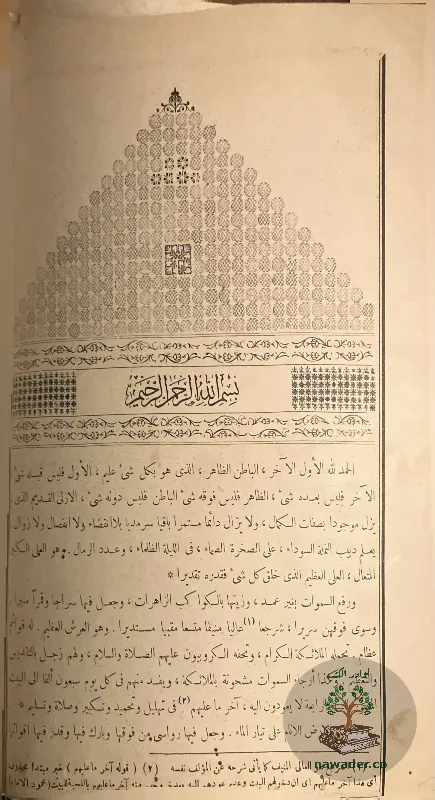 بسم الله الرحمن الرحيم
الحمد لله الأول الآخر ، الباطن الظاهر ، الذى هو بكل شئ عليم ، الأول فليس قبله شئ
الآخر فليس بعده شئ ، الظاهر فليس فوقه شئ الباطن فليس دونه شئ ، الازلى القديم الذى
يزل موجودا بصفات الكمال ، ولا يزال دائما مستمرا باقيا سرمديا بلا انقضاء ولا انفصال ولا زوال
يعلم دبيب النملة السوداء ، على الصخرة الصماء ، فى الليلة الظلماء ، وعدد الرمال . وهو العلى الكبير
المتعال ، العلى العظيم الذى خلق كل شئ فقدره تقديرا *
ورفع السموات بغير عمد ، وزينها بالكواكب الزاهرات ، وجعل فيها سراجا وقمرا منيرا ،
وسوى فوقهن سريرا ، شرجعا (١) عاليا منيفا متسعا مقبيا مستديرا . وهو العرش العظيم . له قوائم
عظام . تحمله الملائكة الكرام ، وتحفه الكروبيون عليهم الصلاة والسلام ، ولهم زجل بالتقديس
والتعظيم . وكذا أرجاء السموات مشحونة بالملائكة ، ويفد منهم فى كل يوم سبعون ألفا الى البيت
لا يعودون اليه ، آخر ما عليهم (٢) فى تهليل وتحميد وتكبير وصلاة وتسليم *
الانام على تيار الماء . وجعل فيها رواسى من فوقها وبارك فيها وقدر فيها أقواتها
العالى المنيف كما يأتى شرحه عن المؤلف نفسه (٢) ( قوله آخر ما عليهم ) خبر مبتدا محذوف
أى هذا آخر ما عليهم
نوادر الكتب
nawader.co